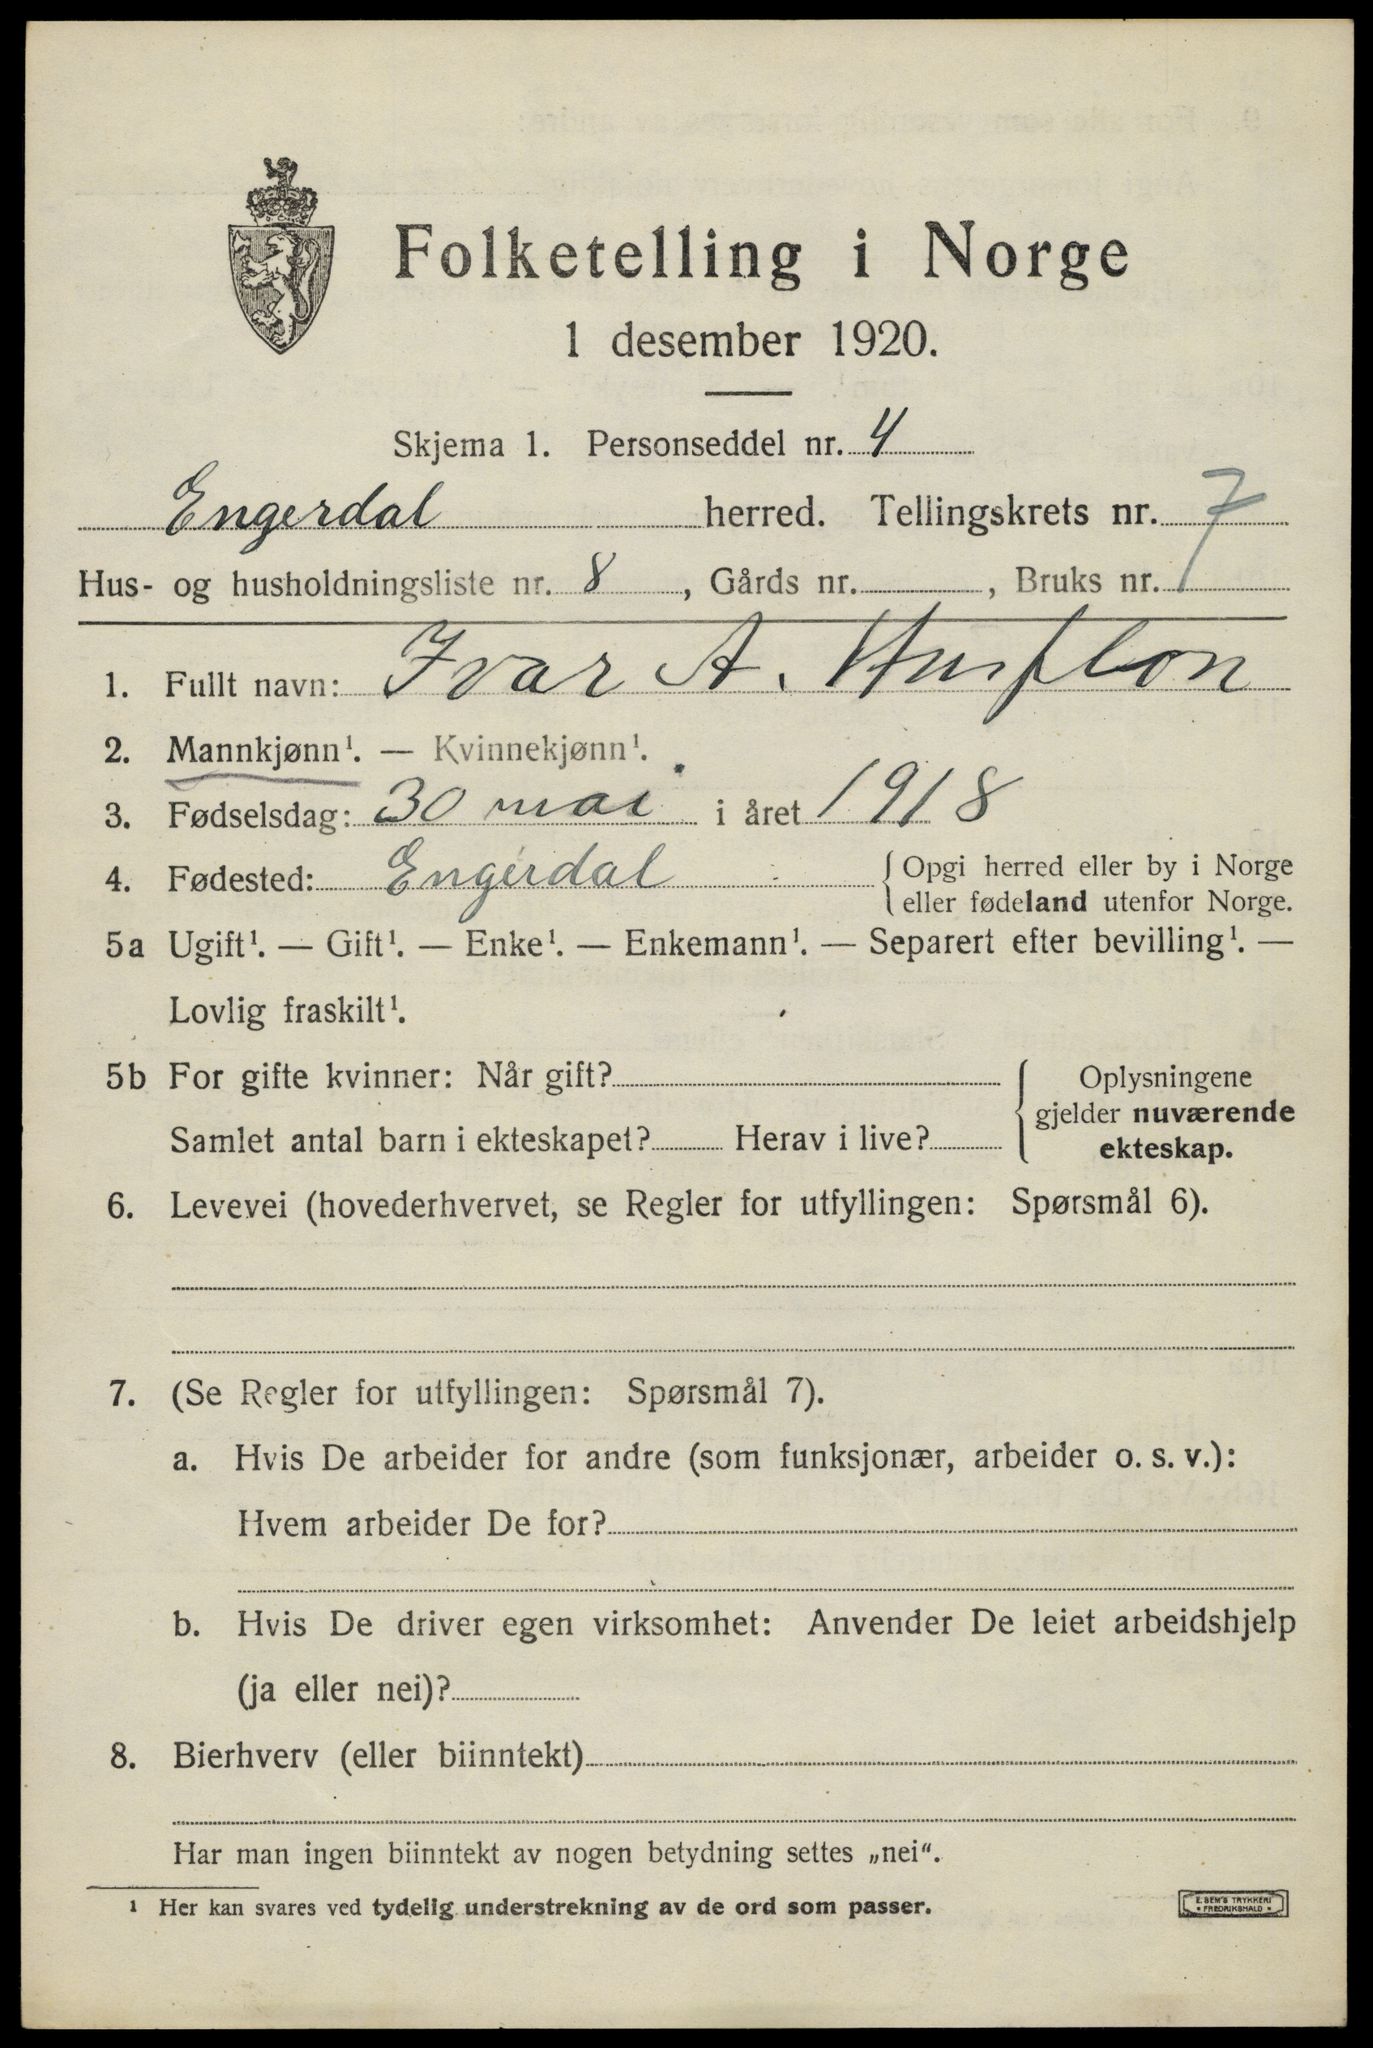 Folketelling i Norge
1 desember 1920.
Skjema 1. Personseddel nr. 4
Engerdal herred. Tellingskrets nr. 7
Hus- og husholdningsliste nr. 8, Gårds nr. , Bruks nr.
1. Fullt navn: Ivar A. Husfloen
2. Mannkjønn¹. — Kvinnekjønn¹.
3. Fødselsdag: 30 mai i året 1918
4. Fødested: Engerdal { Opgi herred eller by i Norge
eller fødeland utenfor Norge.
5a Ugift¹. — Gift¹. — Enke¹. — Enkemann¹. — Separert efter bevilling¹. —
Lovlig fraskilt¹.
5b For gifte kvinner: Når gift?
Samlet antal barn i ekteskapet? Herav i live?
Oplysningene
gjelder nuværende
ekteskap.
6. Levevei (hovederhvervet, se Regler for utfyllingen: Spørsmål 6).
7. (Se Regler for utfyllingen: Spørsmål 7).
a. Hvis De arbeider for andre (som funksjonær, arbeider o. s. v.):
Hvem arbeider De for?
b. Hvis De driver egen virksomhet: Anvender De leiet arbeidshjelp
(ja eller nei)?
8. Bierhverv (eller biinntekt)
Har man ingen biinntekt av nogen betydning settes „nei“.
¹ Her kan svares ved tydelig understrekning av de ord som passer.
E. SEM'S TRYKKERI
FREDRIKSHALD